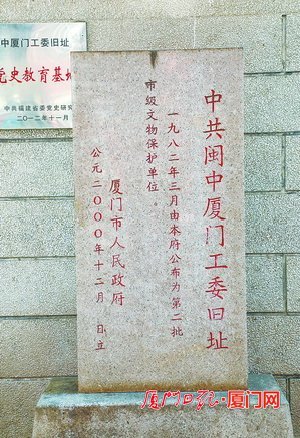 中厦门工委旧址
党史教育基地
中共福建省委党史研究
二〇一二年十一月
中共闽中厦门工委旧址
一九八二年三月由本府公布为第二批
市级文物保护单位。
厦门市人民政府
公元二000年十二月 日立
厦门日报·厦门网